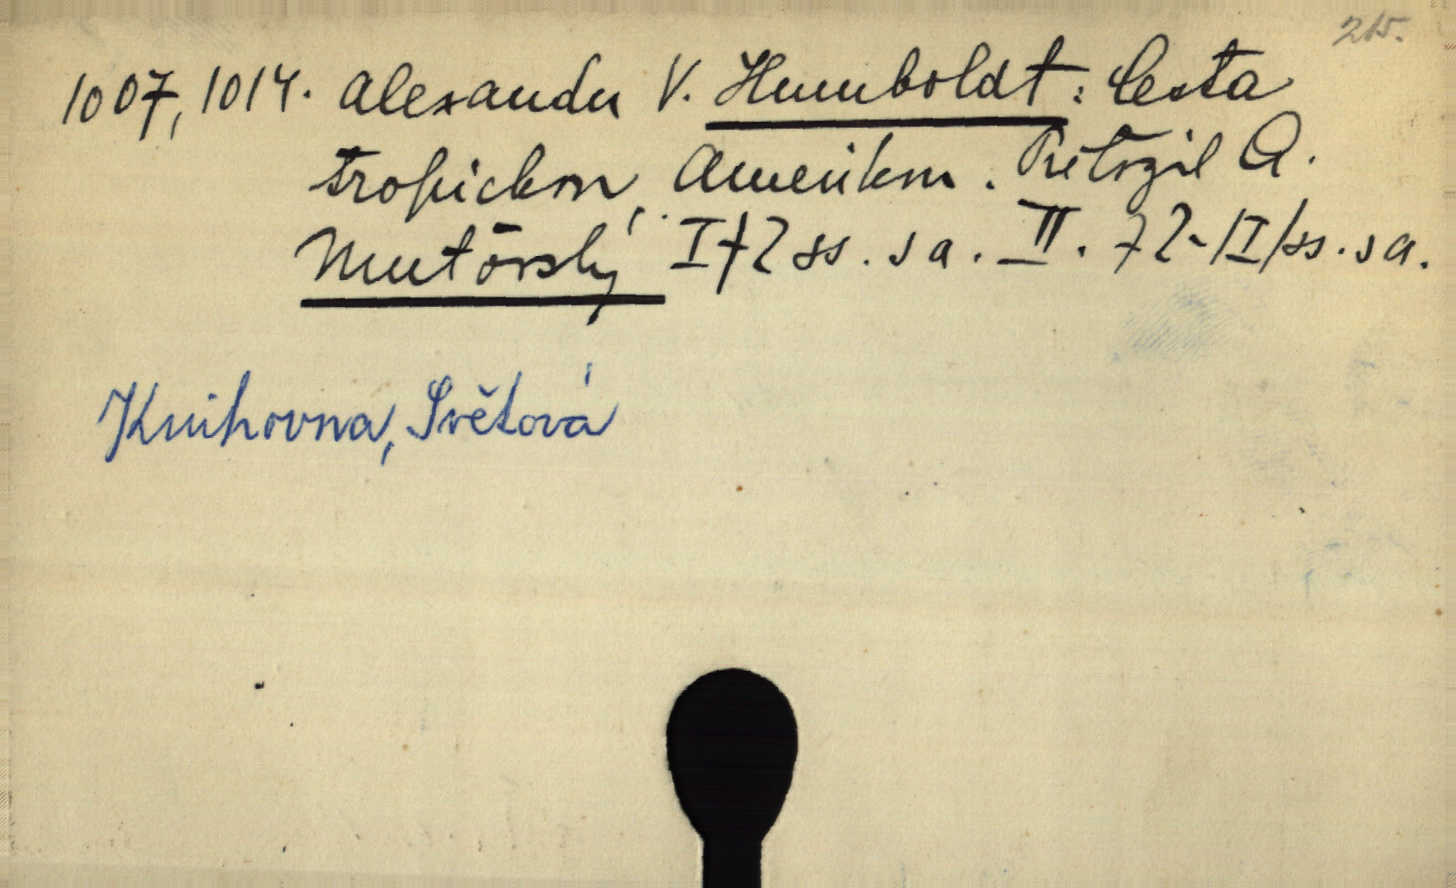 215.
1007, 1014. Alexander V. Humboldt: Cesta
tropickou Amerikou. Přeložil A.
Mutovský I 72 ss. s a. II. 72-111 ss. s a.
Knihovna, Světová